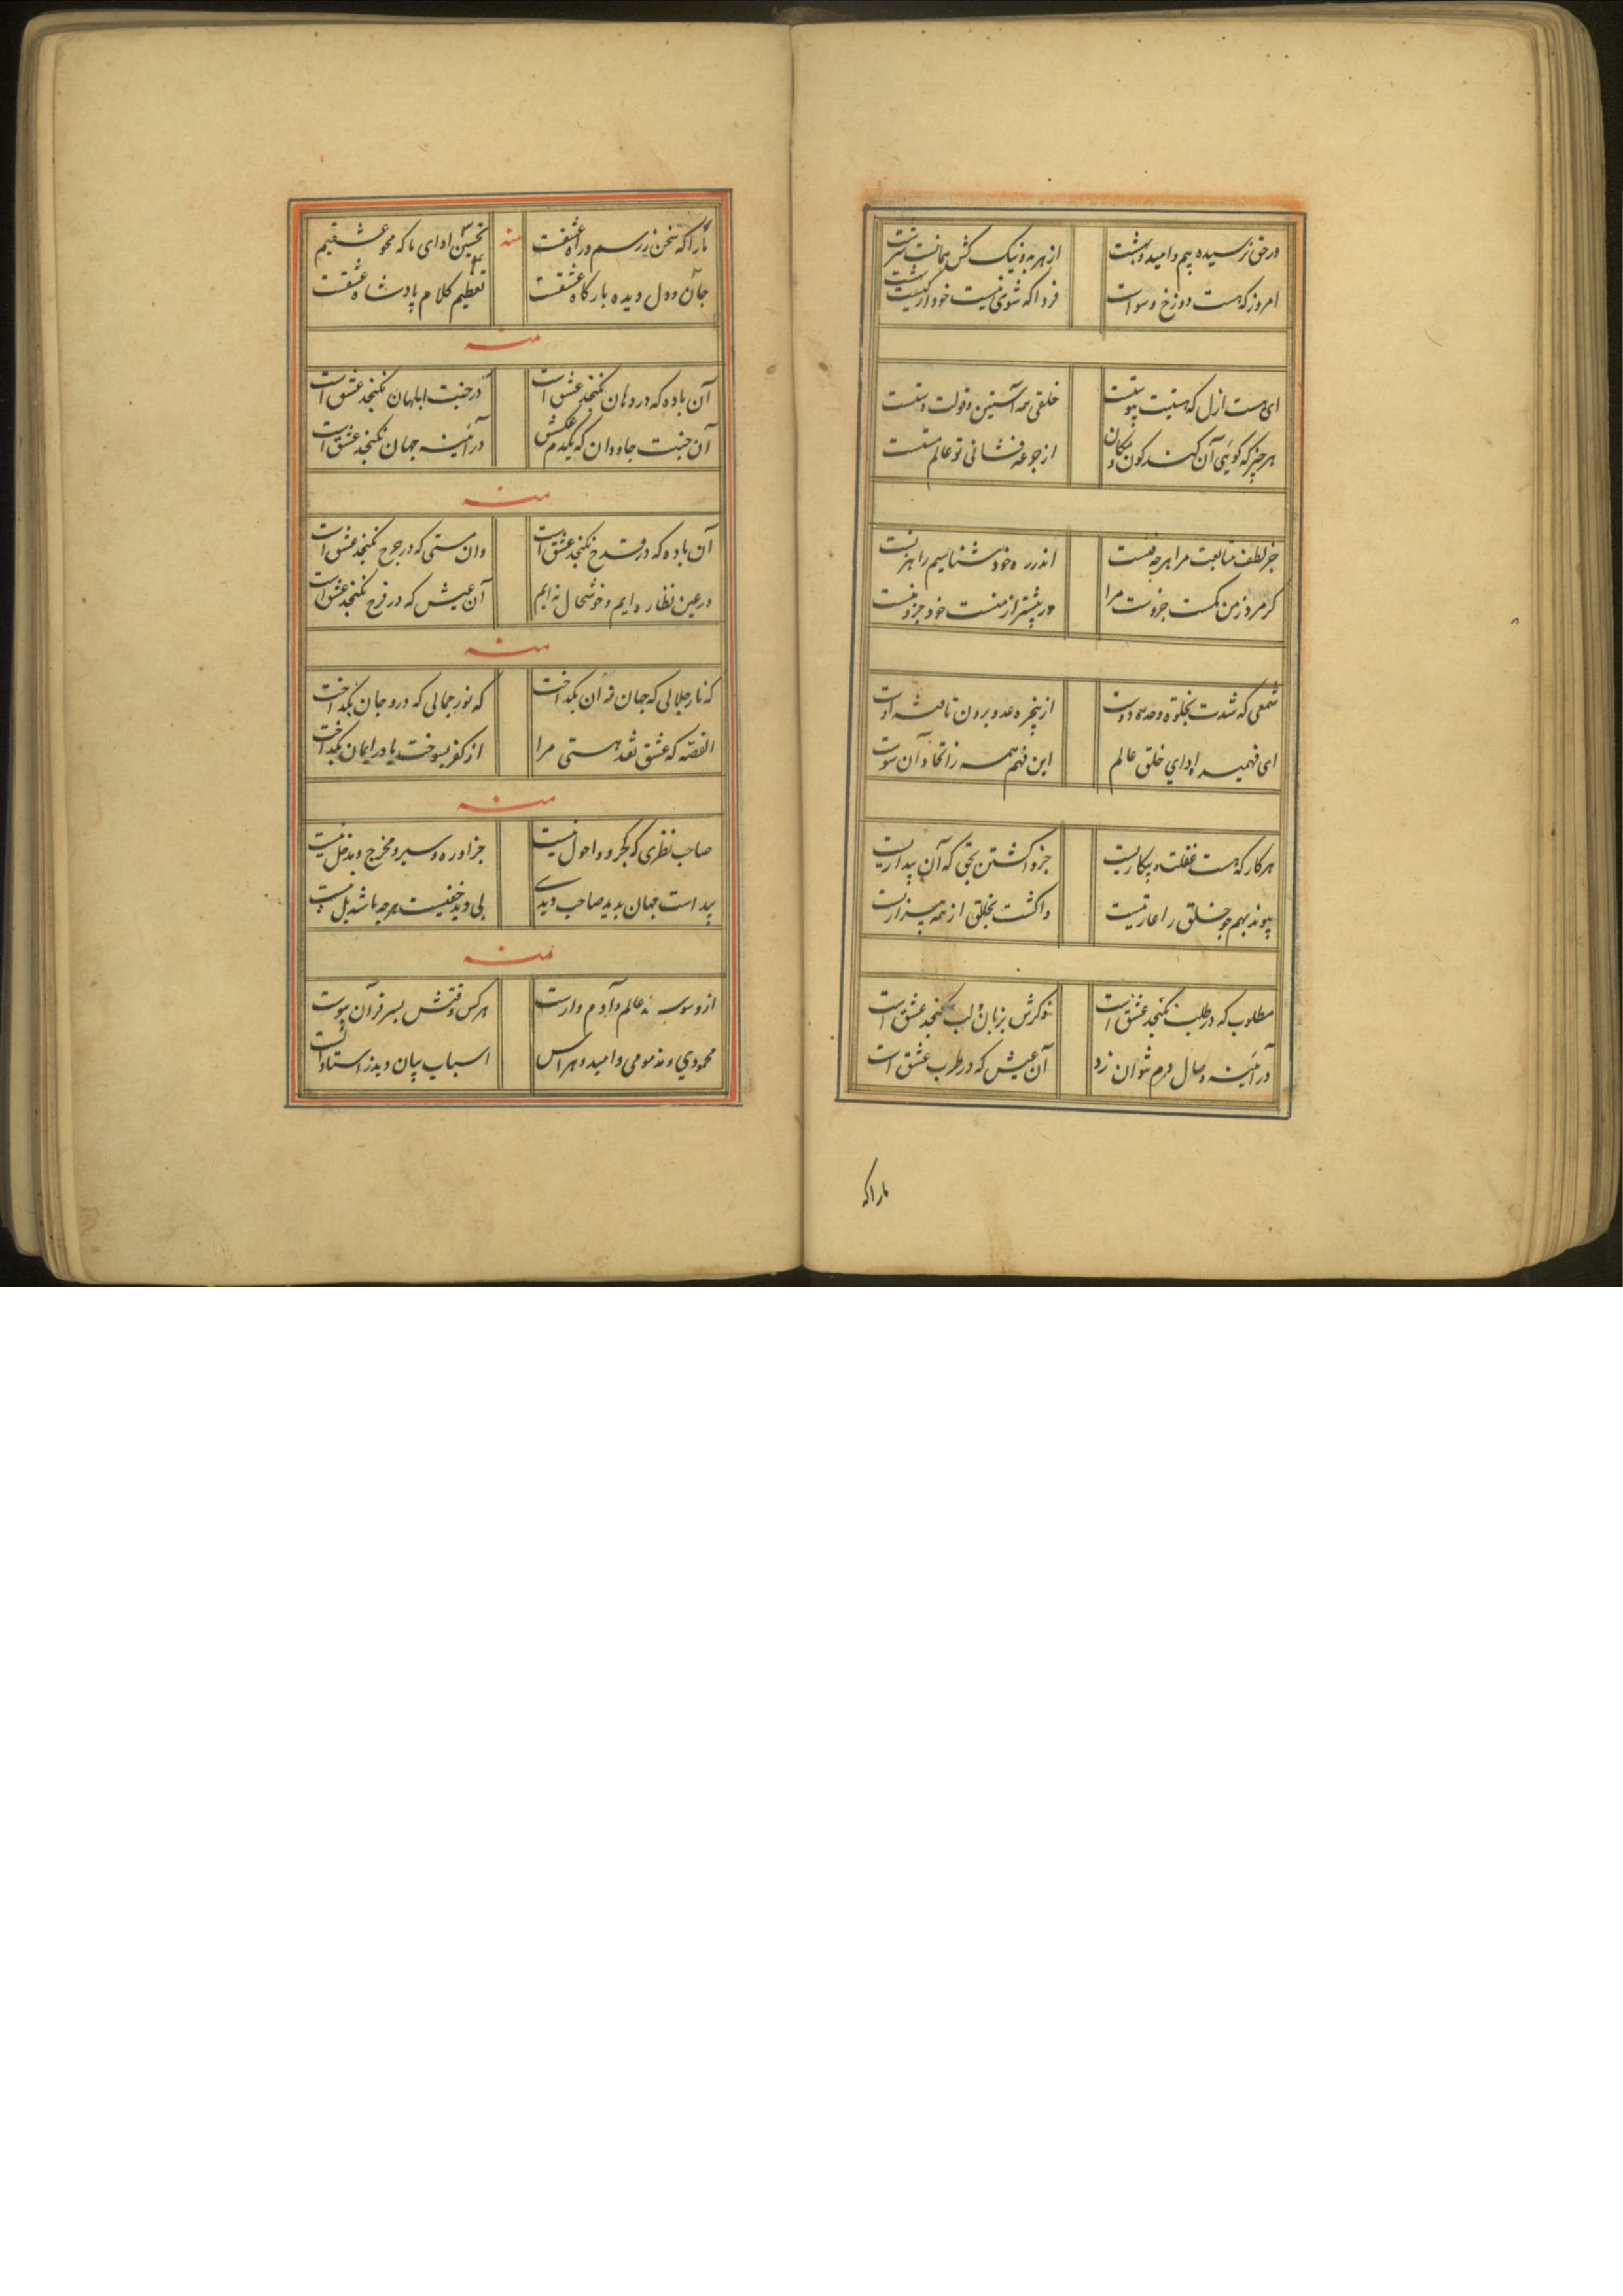 در حق نرسیده بیم و امید و بهشت از هر بد و نیک کش همانست سرشت
امروز که هست دوزخ و سواست فردا که شوی نیست خود از نیست بهشت
ای هست ازل که نیستیت پیوستت خلقی همه آستین و دولت دستت
هر چیز که گوئی آن کند کون و مکان از جرعه فشانی تو عالم مستت
جز لطف متابعت مرا هرچه فنست اندر ره خود شناسیم راهزنست
گر مرد ز من کمست جزوست مرا ور بیشتر از منست خود جزو منست
شمعی که شدت بجلوه وحده دوست از پنجره عدد برون تافته اوست
ای فهمیده ادای خلق عالم این فهم همه زانجا و آن سوست
هر کار که هست غفلت و بیکاریست جز واگشتن بحق که آن بیداریست
پیوند بهم جو خلق را عاریتیست واگشت بخلق از همه بیزاریست
مطلوب که در طلب نگنجد عشق است ذکرش بزبان و لب نگنجد عشق است
در آئینه وصال دم نتوان زد آن عیش که در طرب عشق است
ما را که
ما را که سخن ز رسم و راه عشقست منه تحسین ادای ما که محو عشقیم
جان و دل و دیده بارگاه عشقست تعظیم کلام پادشاه عشقست
منه
آن باده که در دهان نگنجد عشق است در جنت ابلهان نگنجد عشق است
آن جنت جاودان که یکدم عکسش در آئینه جهان نگنجد عشق است
منه
آن باده که در قدح نگنجد عشق است وان مستی که در جرح نگنجد عشق است
در عین نظاره ایم و خوشحال نه ایم آن عیش که در فرح نگنجد عشق است
منه
که نار جلالی که جهان زان بگداخت که نور جمالی که درو جان بگداخت
القصه که عشق نقد هستی مرا از کفر بسوخت یا در ایمان بگداخت
منه
صاحب نظری که کجرو و احول نیست جز او ره و سیر و مخرج و مدخل نیست
پیداست جهان بدید صاحب دیدی بی دید خفیست هرچه باشد بل نیست
منه
از وسوسه عالم و آدم وارست هر کس وقتش بسر قرآن پیوست
محمودی و مذمومی و امید و هراس اسباب بیان دید ز استاد